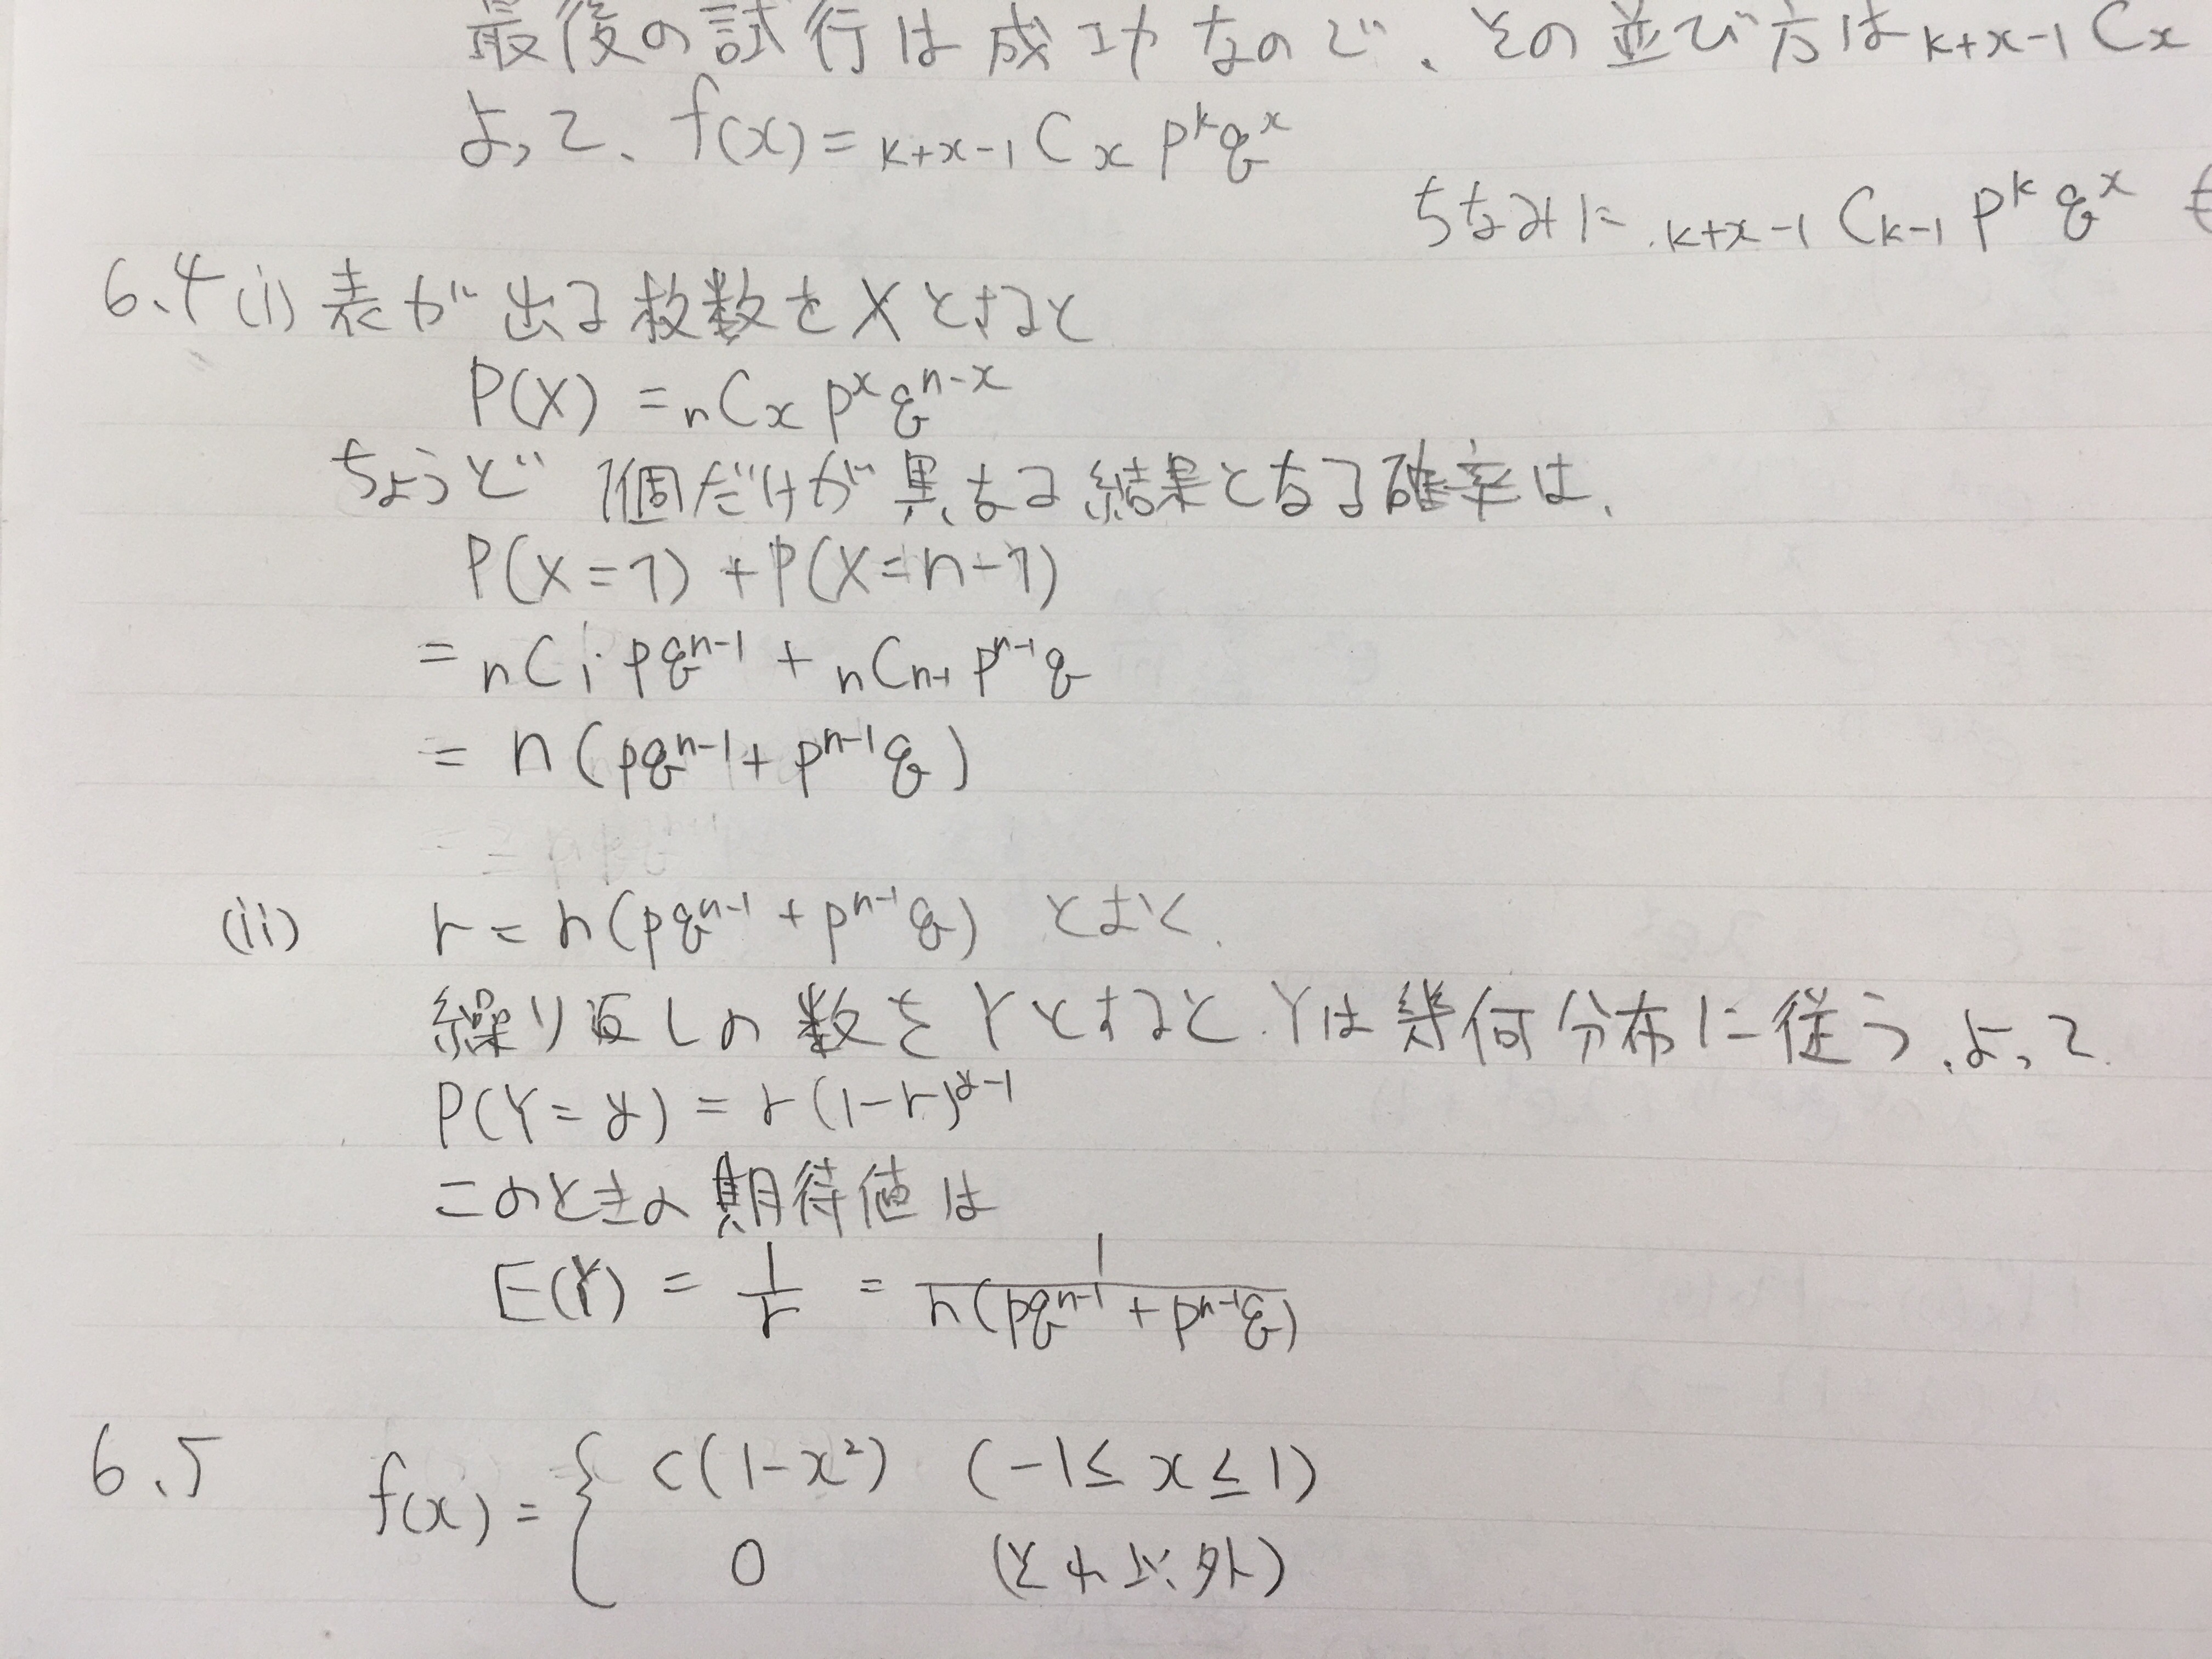 最後の試行は成功なので、その並び方は k+x-1 C x
よって、f(x) = k+x-1 C x p^k q^x
ちなみに k+x-1 C k-1 p^k q^x
6.4 (i) 表が出る枚数をXとすると
P(X) = nCx p^x q^{n-x}
ちょうど 1個だけが異なる結果となる確率は、
P(X=1) + P(X=n-1)
= nC1・pq^{n-1} + nCn-1 p^{n-1}q
= n(pq^{n-1} + p^{n-1}q)
(ii) r = n(pq^{n-1} + p^{n-1}q) とおく.
繰り返しの数をYとすると、Yは幾何分布に従う、よって
P(Y=y) = r(1-r)^{y-1}
このときの期待値は
E(Y) = 1/r = 1/n(pq^{n-1} + p^{n-1}q)
6.5 f(x) = { c(1-x²) (-1≦x≦1)
0 (それ以外)